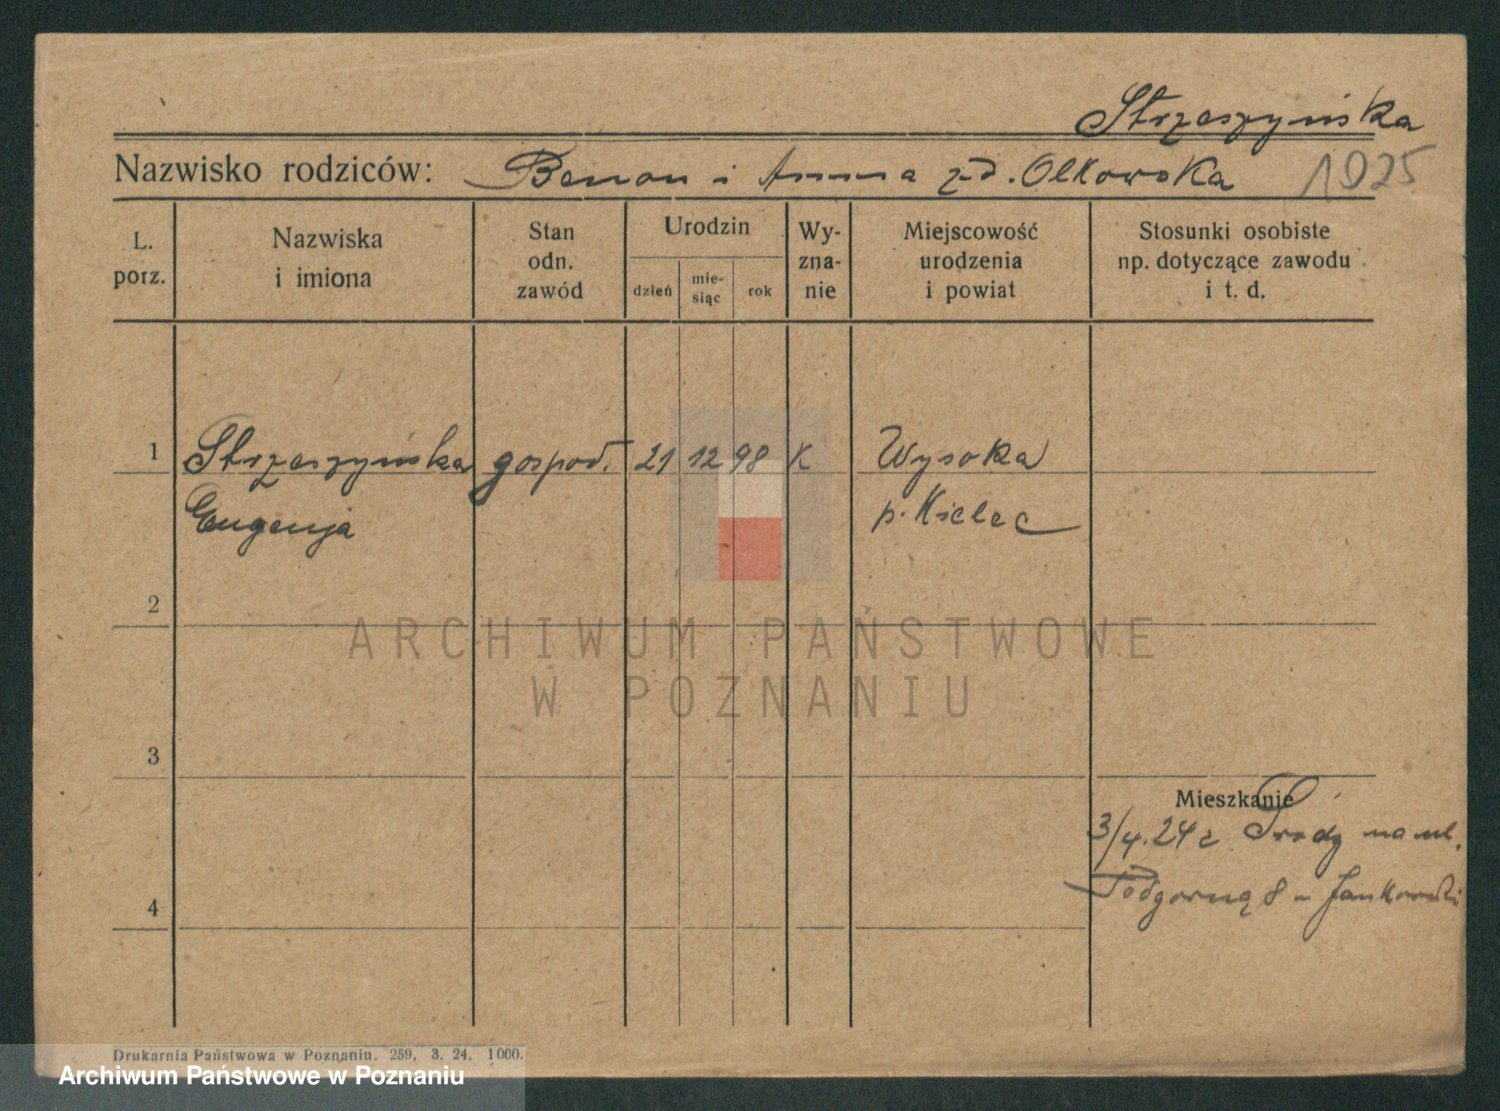 Strzeszyńska
Nazwisko rodziców: Benon i Anna zd. Olkowska 1925
L. porz.
Nazwiska i imiona
Stan odn. zawód
Urodzin
dzień
mie-siąc
rok
Wy-zna-nie
Miejscowość urodzenia i powiat
Stosunki osobiste np. dotyczące zawodu i t. d.
1 Strzeszyńska gospod. 21 12 98 K Wysoka
Eugenja p. Kielec
2
ARCHIWUM PAŃSTWOWE
W POZNANIU
3
Mieszkanie
3/4.24 z Środy na ul.
4
Podgórną 8 u Jankowski
Drukarnia Państwowa w Poznaniu. 259. 3. 24. 1000.
Archiwum Państwowe w Poznaniu